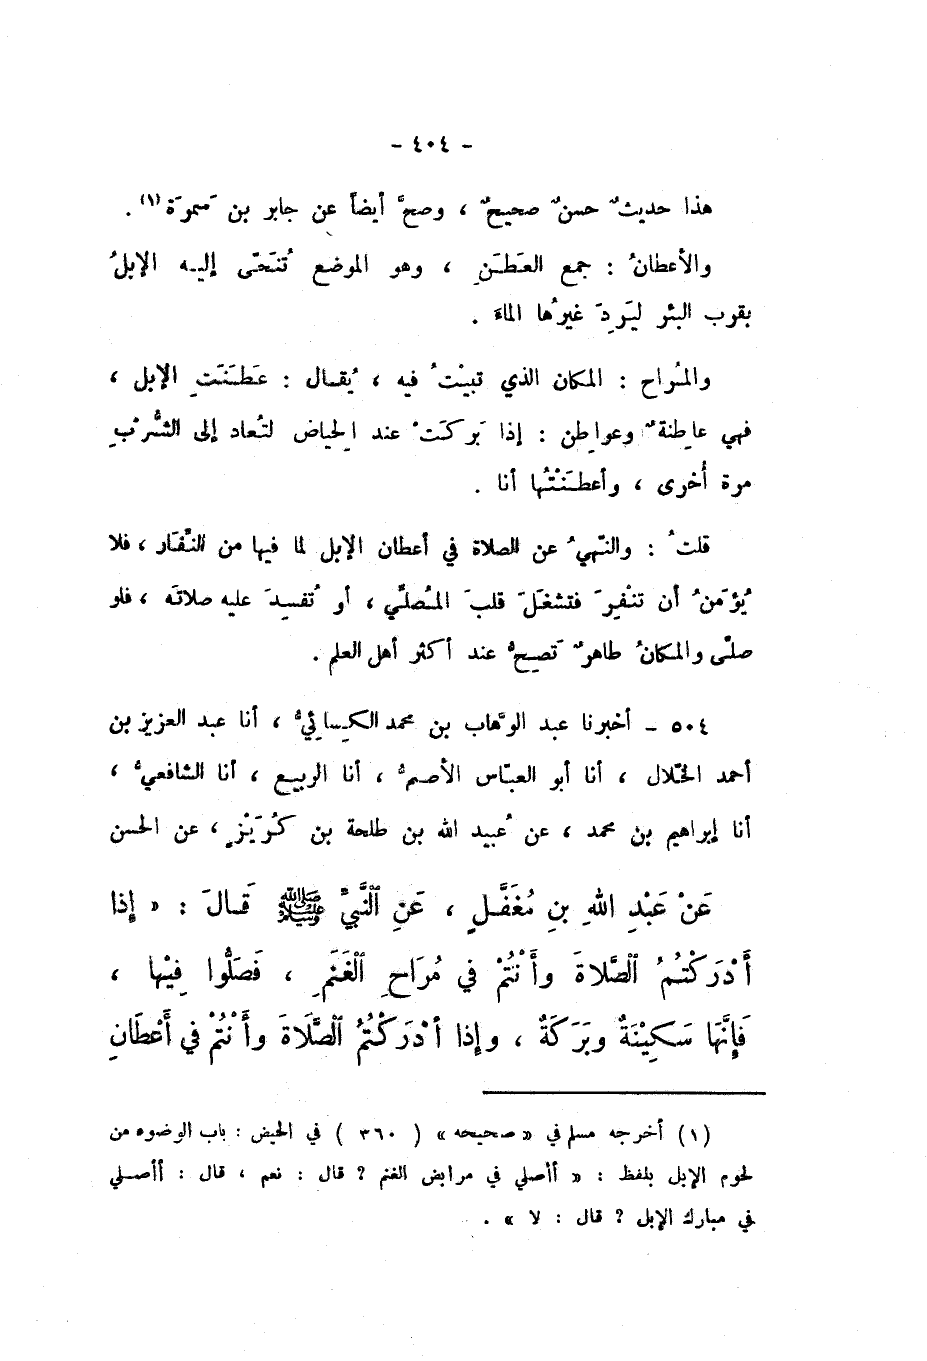 - ٤٠٤ -
هذا حديثٌ حسنٌ صحيحٌ ، وصحَّ أيضاً عن جابر بن سَمُرَة (١) .
والأعطانُ : جمع العَطَنِ ، وهو الموضع تُنَحَّى إليه الإبلُ
بقرب البئر ليَرِدَ غيرُها الماءَ .
والمُراح : المكان الذي تبيْتُ فيه ، يُقال : عَطَنَتِ الإبل ،
فهي عاطِنةٌ وعواطِن : إذا بَركَتْ عند الحِياض لتُعاد إلى الشُّرْبِ
مرة أُخرى ، وأعطَنْتُها أنا .
قلتُ : والنّهيُ عن الصلاة في أعطان الإبل لما فيها من النِّفَار ، فلا
يُؤمَنُ أن تنفِرَ فتشغَلَ قلبَ المُصلّي ، أو تُفسِدَ عليه صلاتَه ، فلو
صلّى والمكانُ طاهرٌ تَصِحُّ عند أكثر أهل العلم .
٥٠٤ - أخبرنا عبد الوهّاب بن محمد الكِسائيُّ ، أنا عبد العزيز بن
أحمد الخلّال ، أنا أبو العبّاس الأصمُّ ، أنا الربيع ، أنا الشافعيُّ ،
أنا إبراهيم بن محمد ، عن عُبيد الله بن طلحة بن كُرَيْزٍ ، عن الحسن
عَنْ عَبْدِ اللهِ بنِ مُغَفَّلٍ ، عَنِ ٱلنَّبيِّ ﷺ قَالَ : « إِذا
أَدْرَكْتُمُ ٱلصَّلاةَ وأَنْتُمْ في مُرَاحِ ٱلْغَنَمِ ، فَصَلُّوا فِيْها ،
فَإِنَّهَا سَكِيْنَةٌ وبَرَكَةٌ ، وإِذا أدْرَكْتُمُ ٱلصَّلَاةَ وأَنْتُمْ في أَعْطَانِ
(١) أخرجه مسلم في « صحيحه » ( ٣٦٠ ) في الحيض : باب الوضوء من
لحوم الإبل بلفظ : « أأصلي في مرابض الغنم ? قال : نعم ، قال : أأصلي
في مبارك الإبل ? قال : لا » .